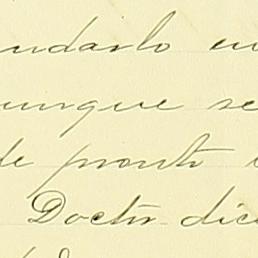 undarlo en
unque se
de pronto
Doctor dice